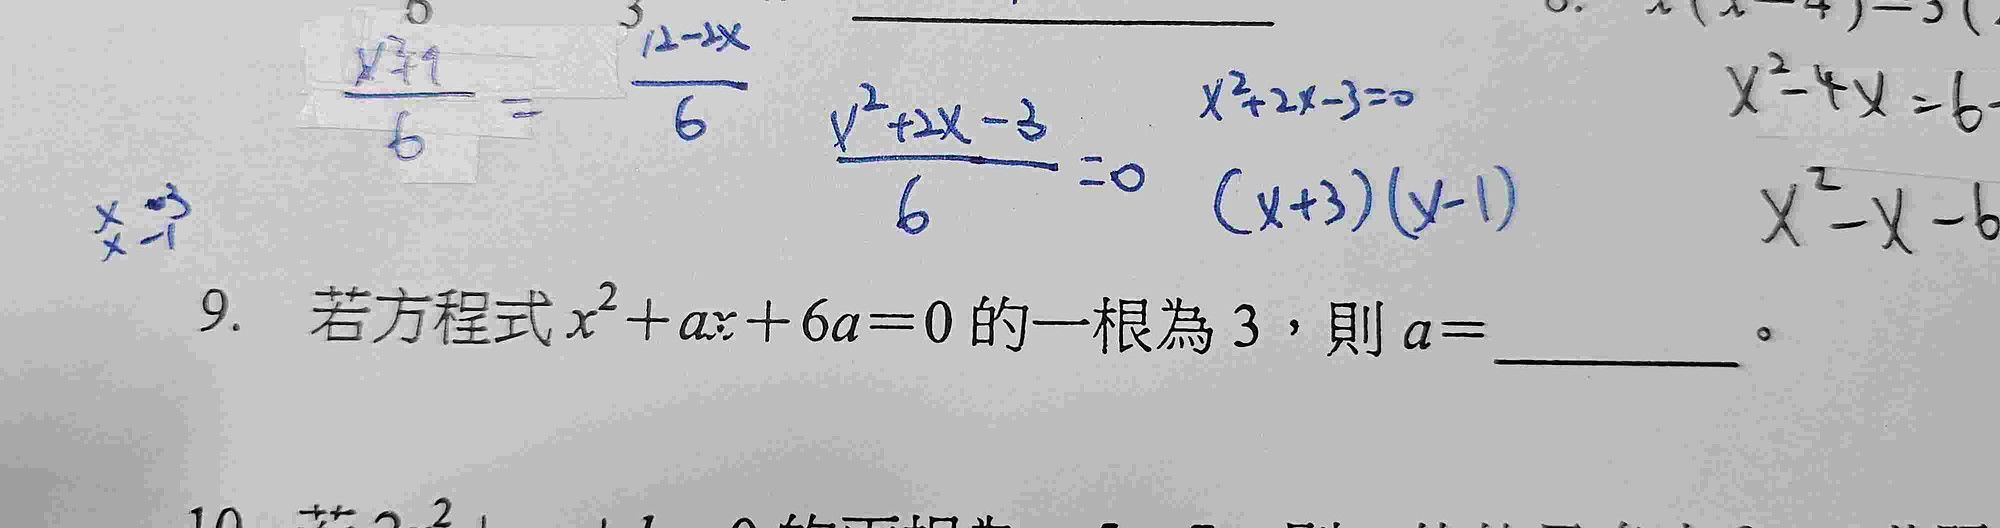 x²+9/6 = 12-2x/6
x²+2x-3/6 =0
x²+2x-3=0
(x+3)(x-1)
x²-4x=6
x²-x-6
x 3
x -1
9. 若方程式 x²+ax+6a=0 的一根為 3,則 a=________。
10.